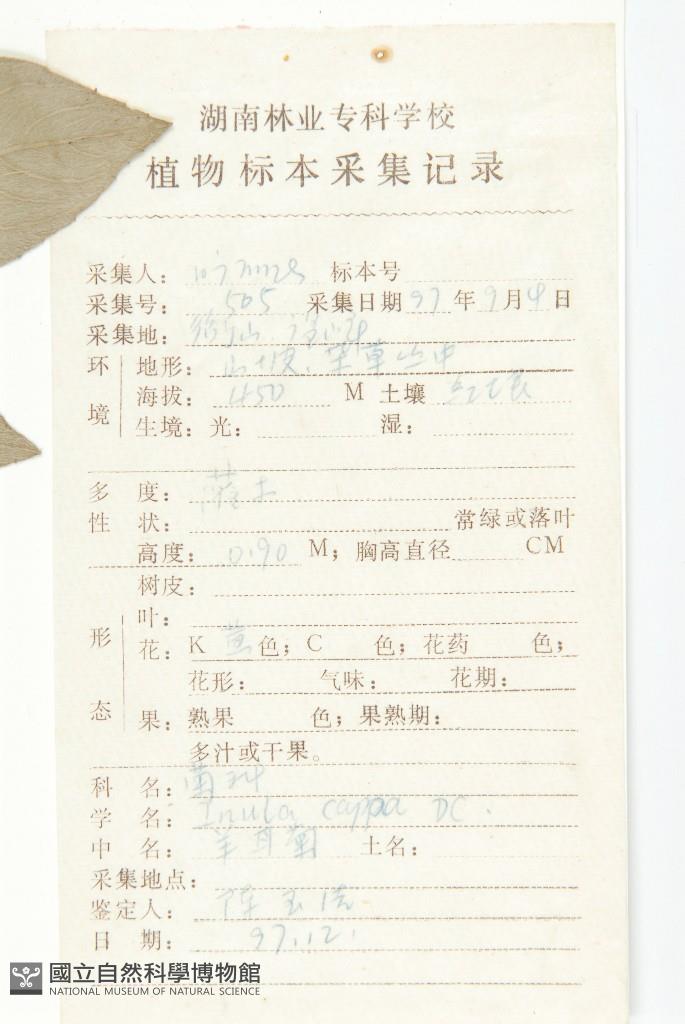 湖南林业专科学校
植物标本采集记录
采集人： 标本号
采集号： 505 采集日期 97 年 9 月 4 日
采集地：
环境 地形： 山坡
海拔： 450 M 土壤 红壤
生境：光： 湿：
多度： 灌木
性状： 常绿或落叶
高度： 0.90 M；胸高直径 CM
树皮：
形态 叶：
花：K 黄 色；C 色；花药 色；
花形： 气味： 花期：
果：熟果 色；果熟期：
多汁或干果。
科名： 菊科
学名： Inula cappa DC.
中名： 羊耳菊 土名：
采集地点：
鉴定人：
日期： 97.12.
國立自然科學博物館
NATIONAL MUSEUM OF NATURAL SCIENCE